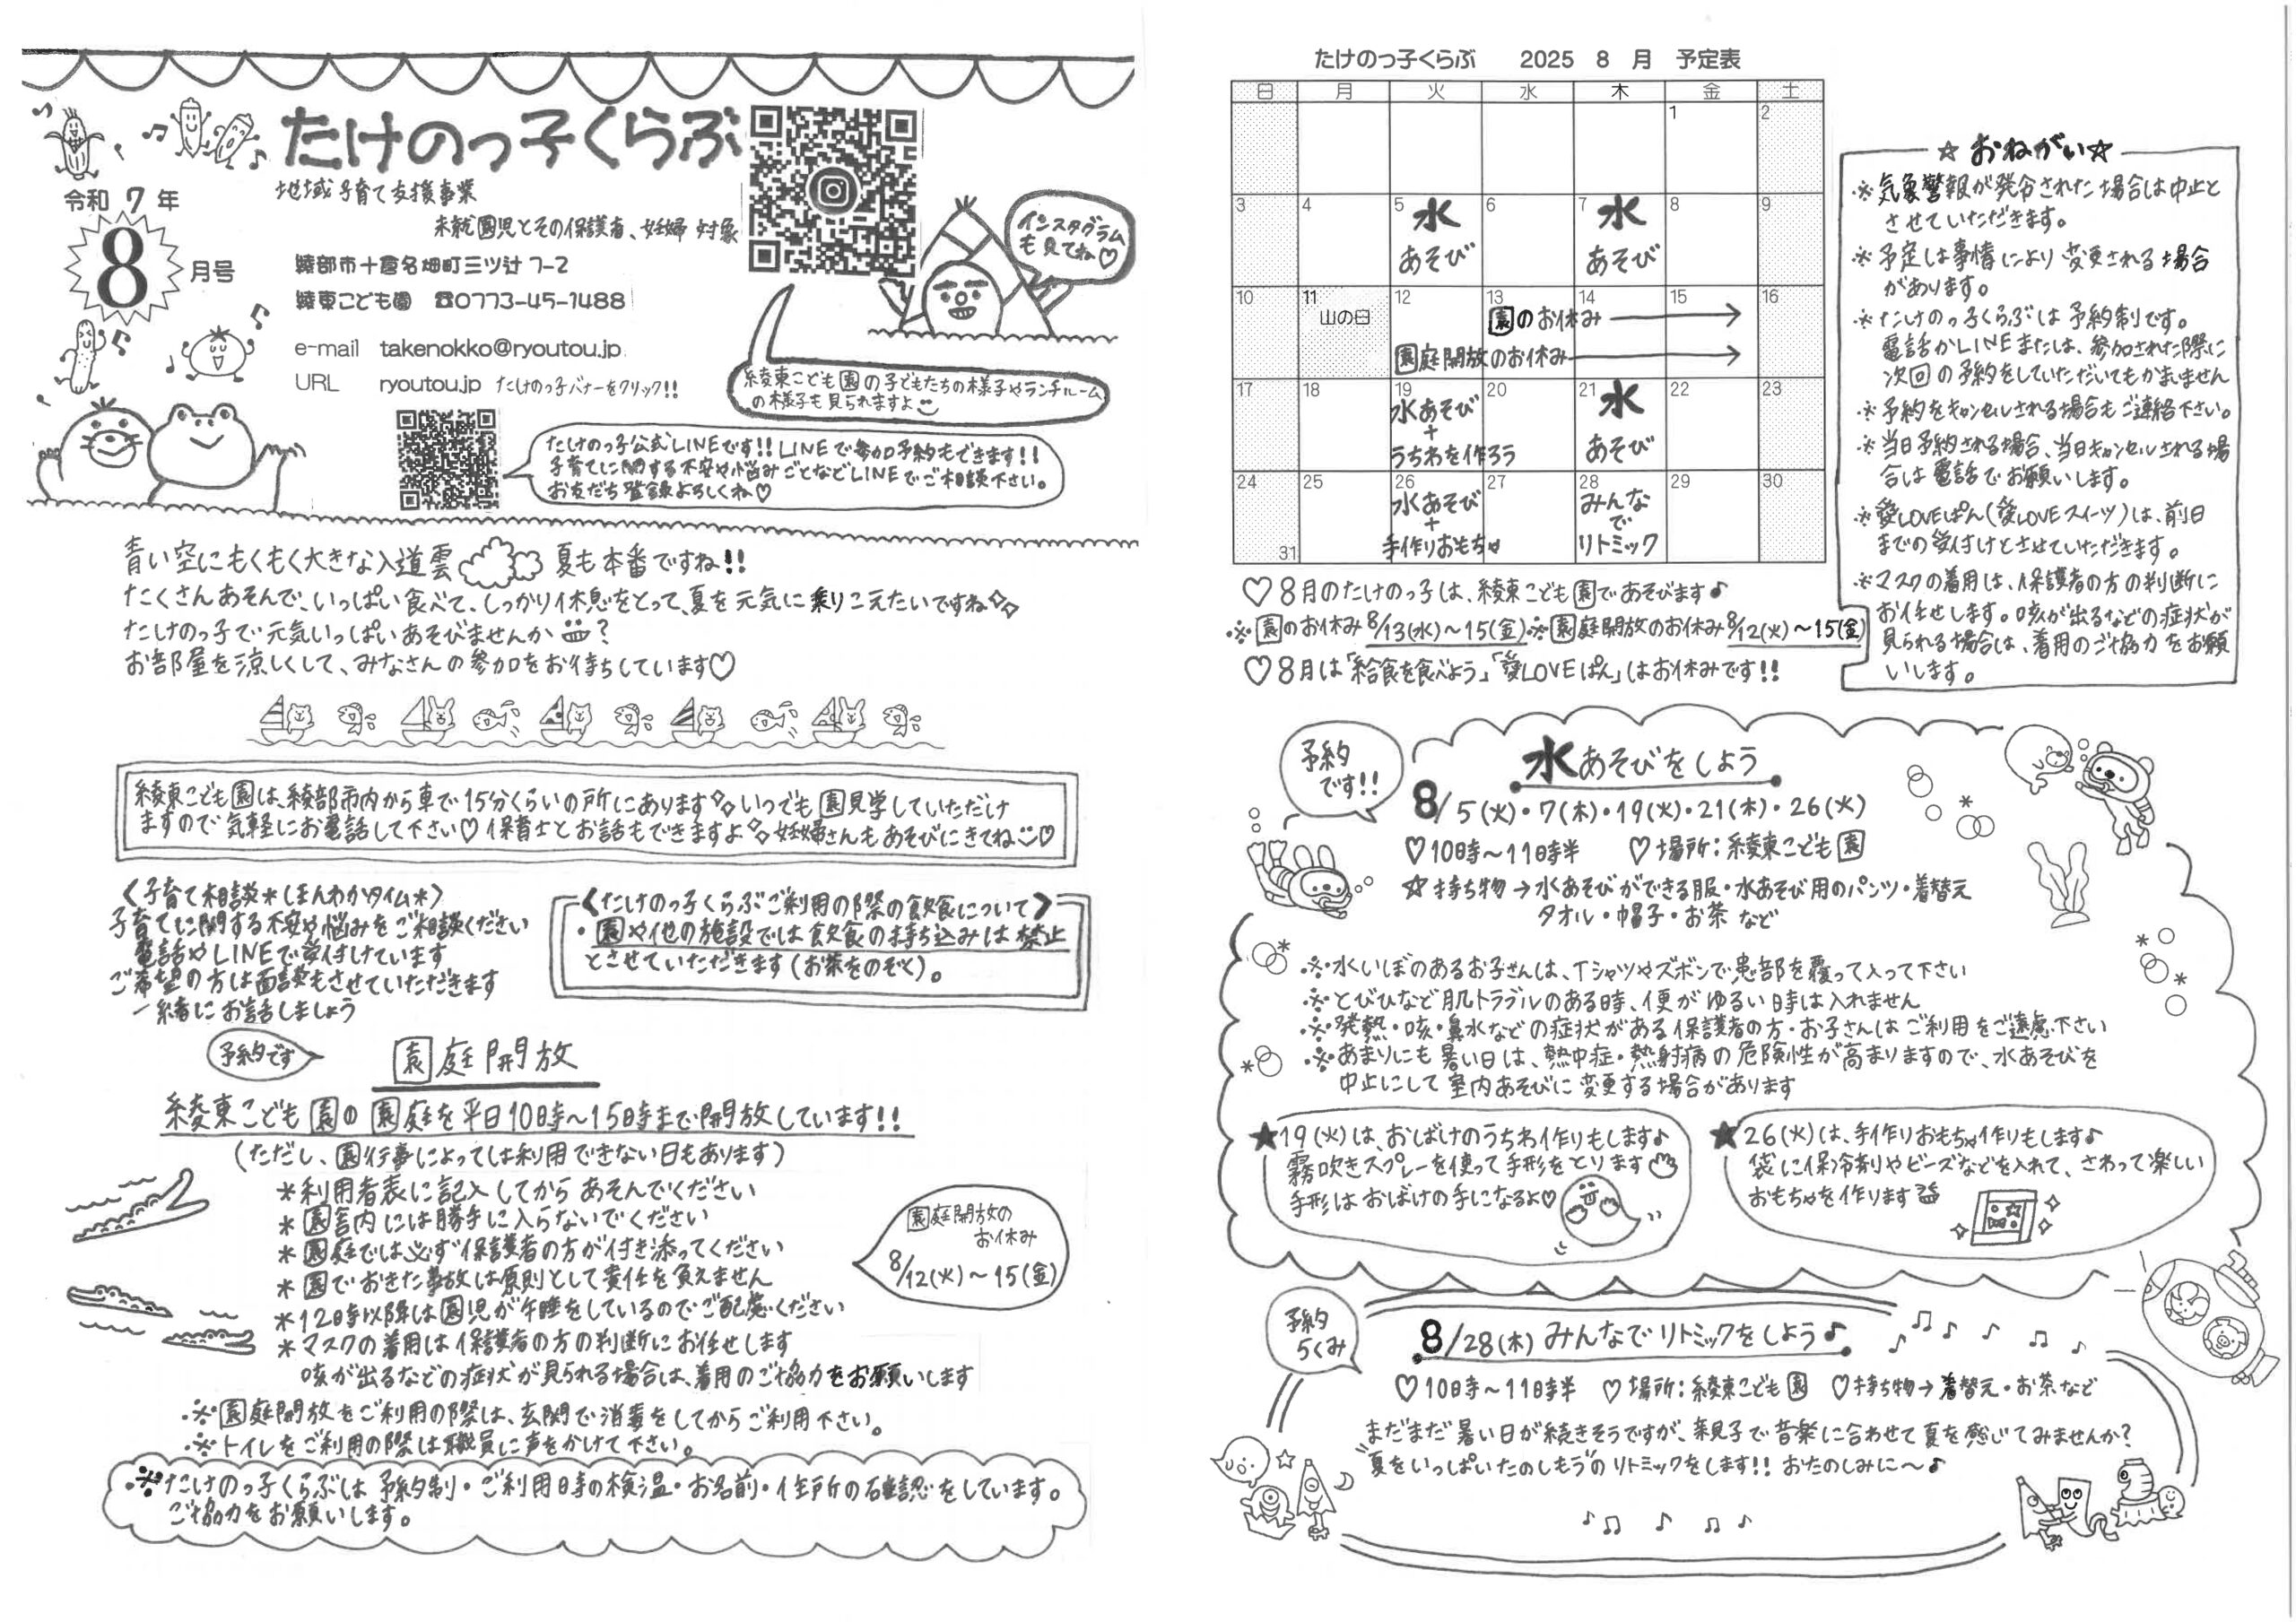 たけのっ子くらぶ
令和 7 年
8
月号
地域子育て支援事業
未就園児とその保護者、妊婦 対象
綾部市十倉名畑町三ツ辻 7-2
綾東こども園 ☎0773-45-1488
e-mail takenokko@ryoutou.jp
URL ryoutou.jp たけのっ子バナーをクリック!!
インスタグラム
も見てね♡
綾東こども園の子どもたちの様子やランチルーム
の様子も見られますよ
たけのっ子公式LINEです!! LINEで参加予約もできます!!
子育てに関する不安や悩みごとなどLINEでご相談下さい。
お友だち登録よろしくね♡
青い空にもくもく大きな入道雲 夏も本番ですね!!
たくさんあそんで、いっぱい食べて、しっかり休息をとって、夏を元気に乗りこえたいですね
たけのっ子で元気いっぱいあそびませんか?
お部屋を涼しくして、みなさんの参加をお待ちしています♡
綾東こども園は、綾部市内から車で15分くらいの所にあります いつでも園見学していただけ
ますので気軽にお電話して下さい♡ 保育士とお話もできますよ 妊婦さんもあそびにきてね♡
〈子育て相談＊ほんわかタイム＊〉
子育てに関する不安や悩みをご相談ください
電話やLINEで受付けています
ご希望の方は面談もさせていただきます
一緒にお話しましょう
〈たけのっ子くらぶご利用の際の飲食について〉
・園や他の施設では飲食の持ち込みは禁止
とさせていただきます(お茶をのぞく)。
予約です
園庭開放
綾東こども園の園庭を平日10時〜15時まで開放しています!!
(ただし、園行事によっては利用できない日もあります)
＊利用者表に記入してからあそんでください
＊園舎内には勝手に入らないでください
＊園庭では必ず保護者の方が付き添ってください
＊園でおきた事故は原則として責任を負えません
＊12時以降は園児が午睡をしているのでご配慮ください
＊マスクの着用は保護者の方の判断にお任せします
咳が出るなどの症状が見られる場合は、着用のご協力をお願いします
園庭開放の
お休み
8/12(火)〜15(金)
※園庭開放をご利用の際は、玄関で消毒をしてからご利用下さい。
※トイレをご利用の際は職員に声をかけて下さい。
※たけのっ子くらぶは予約制・ご利用時の検温・お名前・住所の確認をしています。
ご協力をお願いします。
たけのっ子くらぶ 2025 8 月 予定表
日 月 火 水 木 金 土
1 2
3 4 5 6 7 8 9
水 水
あそび あそび
10 11 12 13 14 15 16
山の日 園のお休み→
園庭開放のお休み→
17 18 19 20 21 22 23
水あそび 水
+
うちわを作ろう あそび
24 25 26 27 28 29 30
水あそび みんな
+ で
手作りおもちゃ リトミック
31
♡8月のたけのっ子は、綾東こども園であそびます♪
※園のお休み8/13(水)〜15(金)※園庭開放のお休み8/12(火)〜15(金)
♡8月は「給食を食べよう」「愛LOVEぱん」はお休みです!!
☆おねがい☆
※気象警報が発令された場合は中止と
させていただきます。
※予定は事情により変更される場合
があります。
※たけのっ子くらぶは予約制です。
電話かLINEまたは、参加された際に
次回の予約をしていただいてもかまいません
※予約をキャンセルされる場合もご連絡下さい。
※当日予約される場合、当日キャンセルされる場
合は電話でお願いします。
※愛LOVEぱん(愛LOVEスイーツ)は、前日
までの受付けとさせていただきます。
※マスクの着用は、保護者の方の判断に
お任せします。咳が出るなどの症状が
見られる場合は、着用のご協力をお願
いします。
予約
です!!
水あそびをしよう
8/5(火)・7(木)・19(火)・21(木)・26(火)
♡10時〜11時半 ♡場所:綾東こども園
☆持ち物→水あそびができる服・水あそび用のパンツ・着替え
タオル・帽子・お茶など
※水いぼのあるお子さんは、Tシャツやズボンで患部を覆って入って下さい
※とびひなど肌トラブルのある時、便がゆるい時は入れません
※発熱・咳・鼻水などの症状がある保護者の方・お子さんはご利用をご遠慮下さい
※あまりにも暑い日は、熱中症・熱射病の危険性が高まりますので、水あそびを
中止にして室内あそびに変更する場合があります
★19(火)は、おばけのうちわ作りもします♪
霧吹きスプレーを使って手形をとります
手形はおばけの手になるよ♡
★26(火)は、手作りおもちゃ作りもします♪
袋に保冷剤やビーズなどを入れて、さわって楽しい
おもちゃを作ります
予約
5くみ
8/28(木)みんなでリトミックをしよう♪
♡10時〜11時半 ♡場所:綾東こども園 ♡持ち物→着替え・お茶など
まだまだ暑い日が続きそうですが、親子で音楽に合わせて夏を感じてみませんか?
"夏をいっぱいたのしもう"のリトミックをします!! おたのしみに〜♪